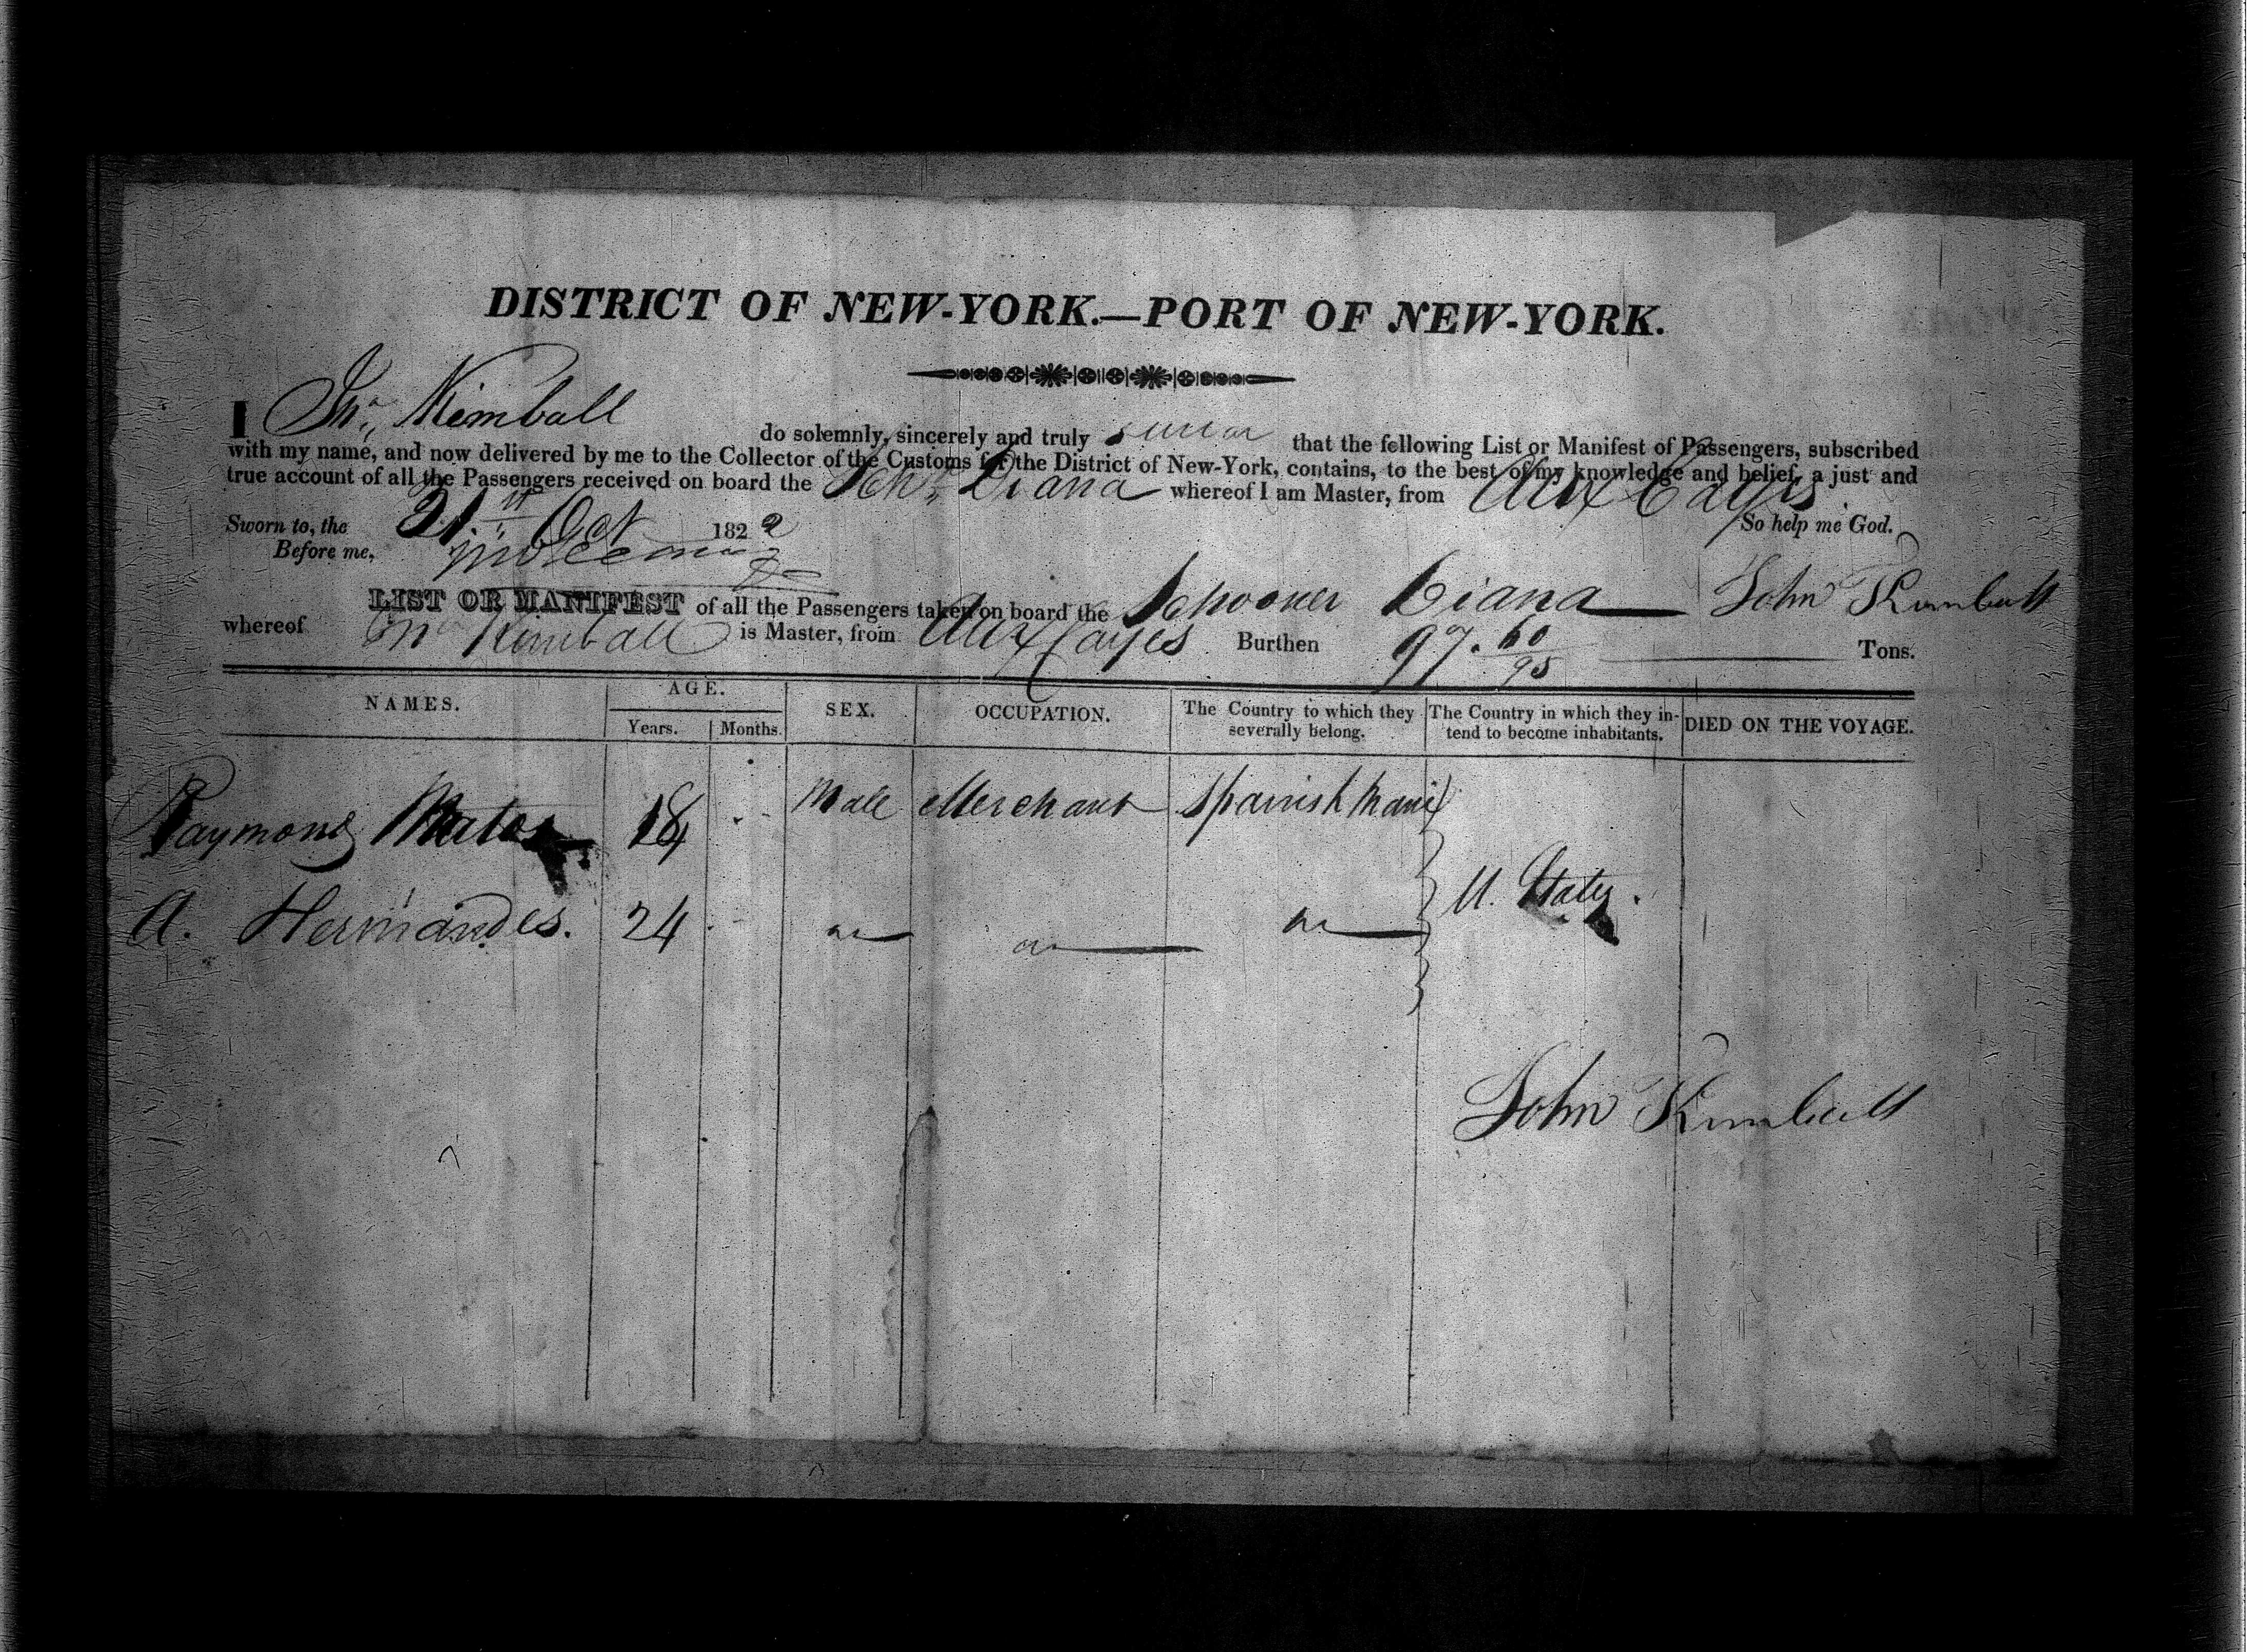 DISTRICT OF NEW-YORK.—PORT OF NEW-YORK.
I Jno. Kimball do solemnly, sincerely and truly swear that the following List or Manifest of Passengers, subscribed
with my name, and now delivered by me to the Collector of the Customs for the District of New-York, contains, to the best of my knowledge and belief, a just and
true account of all the Passengers received on board the Schr. Diana whereof I am Master, from Aux Cayes
So help me God.
Sworn to, the 21st Oct 1822
Before me,
John Kimball
LIST OR MANIFEST of all the Passengers taken on board the Schooner Diana
whereof Jno Kimball is Master, from Aux Cayes Burthen 97. 60/95 Tons.
NAMES. AGE. SEX. OCCUPATION. The Country to which they severally belong. The Country in which they intend to become inhabitants. DIED ON THE VOYAGE.
Years. Months.
Raymond Matos 18 Male Merchant Spanish Main
U. States.
A. Hernandes. 24 do do do
John Kimball